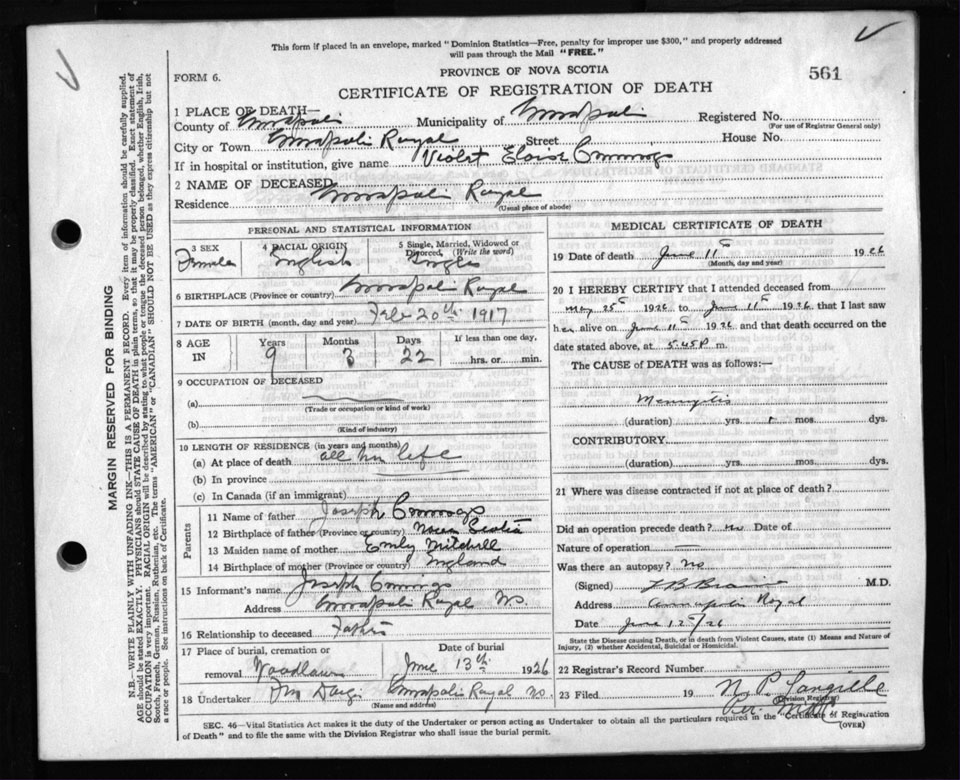 This form if placed in an envelope, marked "Dominion Statistics—Free, penalty for improper use $300," and properly addressed
will pass through the Mail "FREE."
FORM 6.
PROVINCE OF NOVA SCOTIA
561
CERTIFICATE OF REGISTRATION OF DEATH
1 PLACE OF DEATH—
County of Annapolis Municipality of Annapolis Registered No.
(For use of Registrar General only)
City or Town Annapolis Royal Street House No.
If in hospital or institution, give name Violet Eloise
2 NAME OF DECEASED
Residence Annapolis Royal
(Usual place of abode)
PERSONAL AND STATISTICAL INFORMATION
3 SEX
Female
4 RACIAL ORIGIN
English
5 Single, Married, Widowed or
Divorced, (Write the word)
Single
6 BIRTHPLACE (Province or country) Annapolis Royal
7 DATE OF BIRTH (month, day and year) Feb 20th 1917
8 AGE
IN
Years
9
Months
3
Days
22
If less than one day,
hrs. or min.
9 OCCUPATION OF DECEASED
(a)
(Trade or occupation or kind of work)
(b)
(Kind of industry)
10 LENGTH OF RESIDENCE (in years and months)
(a) At place of death all her life
(b) In province
(c) In Canada (if an immigrant)
Parents
11 Name of father Joseph
12 Birthplace of father (Province or country) Nova Scotia
13 Maiden name of mother Emily Mitchell
14 Birthplace of mother (Province or country) England
15 Informant's name Joseph
Address Annapolis Royal NS.
16 Relationship to deceased Father
17 Place of burial, cremation or
removal Woodlawn
Date of burial
June 13th 1926
18 Undertaker Annapolis Royal NS.
(Name and address)
MEDICAL CERTIFICATE OF DEATH
19 Date of death June 11th 1926
(Month, day and year)
20 I HEREBY CERTIFY that I attended deceased from
May 25th 1926 to June 11th 1926 that I last saw
her alive on June 11th 1926 and that death occurred on the
date stated above, at 5.45 P m.
The CAUSE of DEATH was as follows:—
Meningitis
(duration) yrs. mos. dys.
CONTRIBUTORY
(duration) yrs. mos. dys.
21 Where was disease contracted if not at place of death?
Did an operation precede death? no Date of
Nature of operation —
Was there an autopsy? No
(Signed) M.D.
Address Annapolis Royal
Date June 12th/26
State the Disease causing Death, or in death from Violent Causes, state (1) Means and Nature of
Injury, (2) whether Accidental, Suicidal or Homicidal.
22 Registrar's Record Number
23 Filed 19 N. P. Langille
Division Registrar
Per.
SEC. 46—Vital Statistics Act makes it the duty of the Undertaker or person acting as Undertaker to obtain all the particulars required in the "Certificate of Registration
of Death" and to file the same with the Division Registrar who shall issue the burial permit.
(OVER)
MARGIN RESERVED FOR BINDING
N.B.—WRITE PLAINLY WITH UNFADING INK—THIS IS A PERMANENT RECORD. Every item of information should be carefully supplied.
AGE should be stated EXACTLY. PHYSICIANS should STATE CAUSE OF DEATH in plain terms, so that it may be properly classified. Exact statement of
OCCUPATION is very important. RACIAL ORIGIN will be described by stating to what people or tongue the deceased person belonged, whether English, Irish,
Scotch, French, German, Russian, Ruthenian, etc. The terms "AMERICAN" or "CANADIAN" SHOULD NOT BE USED as they express citizenship but not
a race or people. See instructions on back of Certificate.